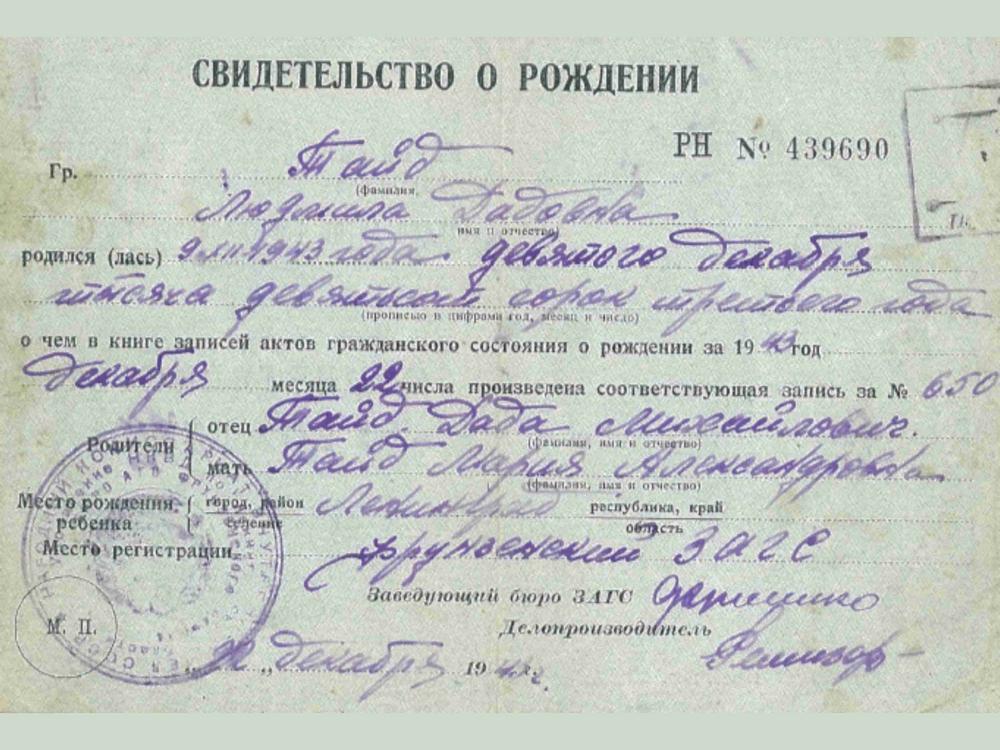 СВИДЕТЕЛЬСТВО О РОЖДЕНИИ
РН № 439690
Гр. Тайд
(фамилия,
Людмила Дадовна
имя и отчество)
родился (лась) 9.XII.1943 года девятого декабря
тысяча девятьсот сорок третьего года
(прописью и цифрами год, месяц и число)
о чем в книге записей актов гражданского состояния о рождении за 1943 год
декабря месяца 22 числа произведена соответствующая запись за № 650
Родители
отец Тайд Дада Михайлович.
(фамилия, имя и отчество)
мать Тайд Мария Александровна
(фамилия, имя и отчество)
Место рождения ребенка город, район селение Ленинград республика, край область
Место регистрации Фрунзенский ЗАГС
Заведующий бюро ЗАГС
Делопроизводитель
М. П.
декабря 194